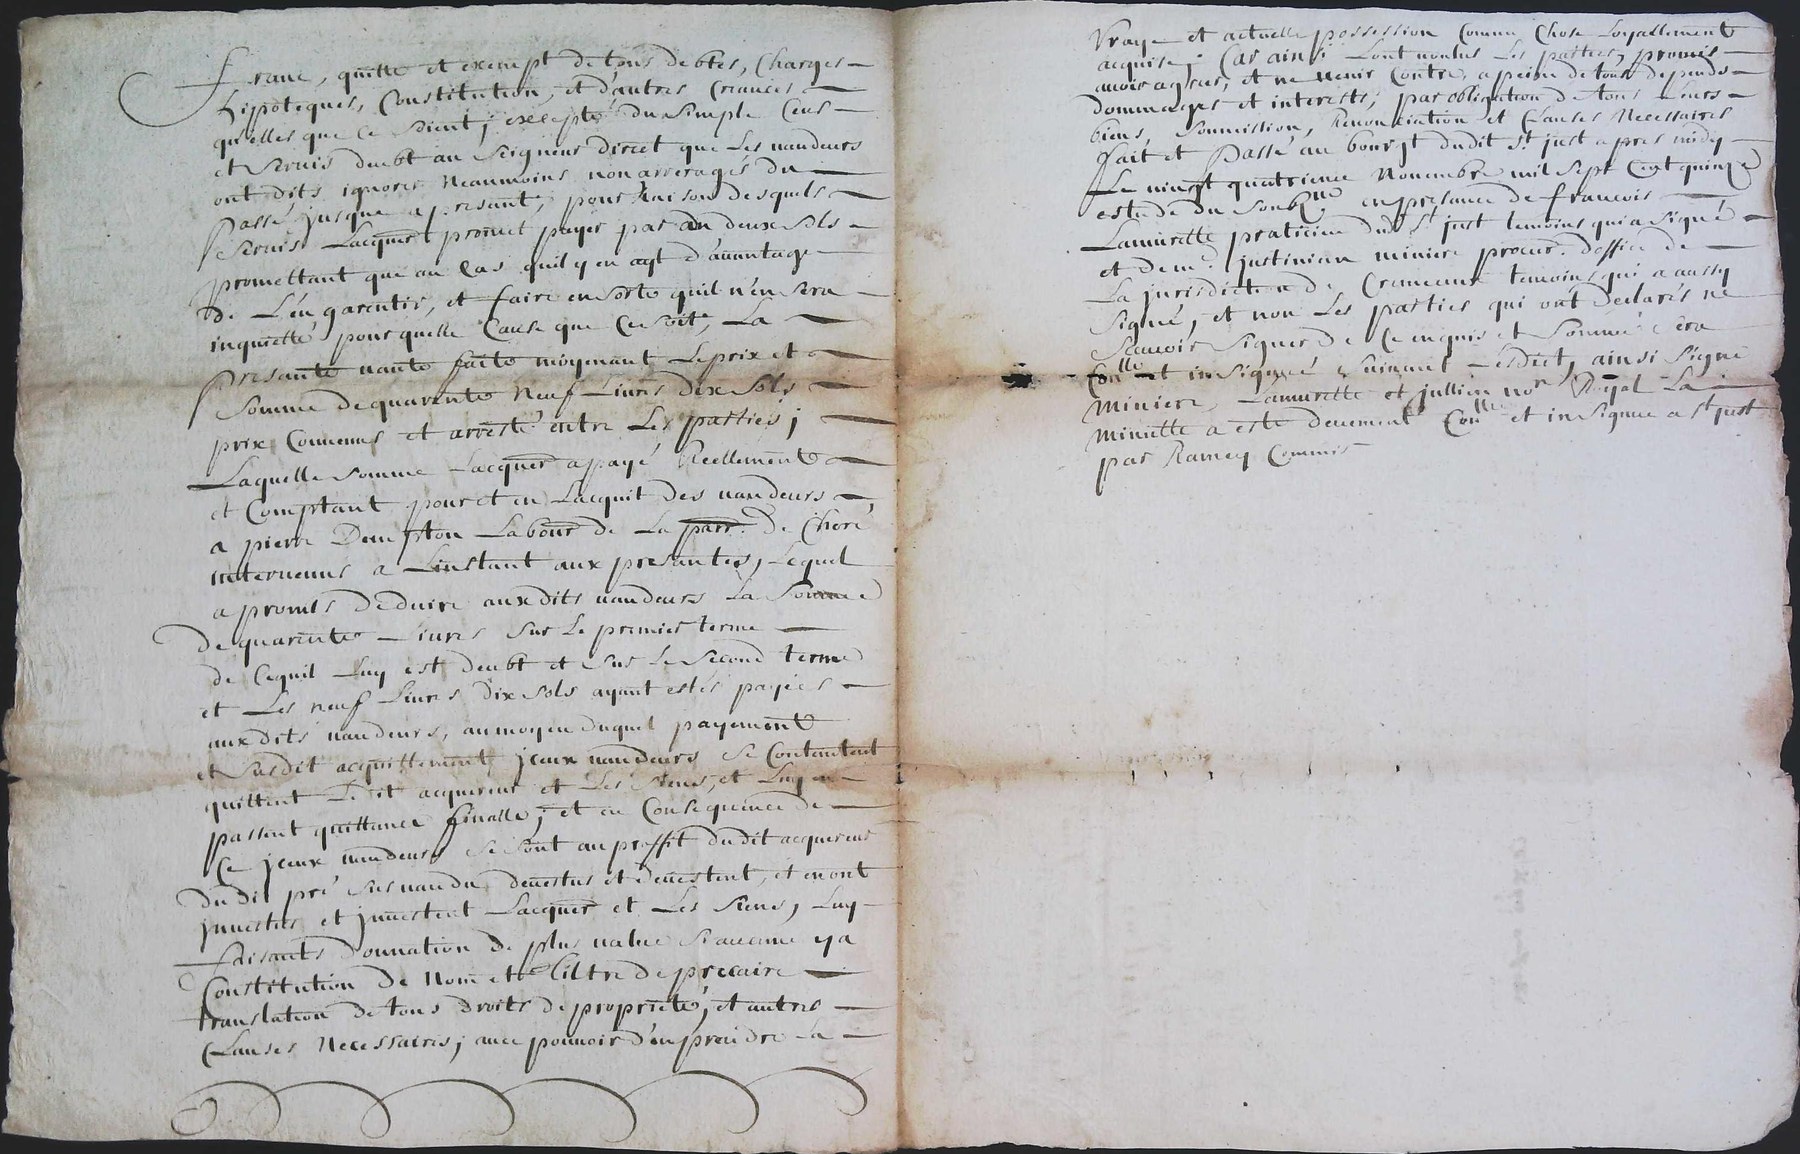 franc, quitte et exempt de tous debtes, Charges
hippoteques, Constitution, et d'autres Criances
qu'elles que ce soient, excepté du simple Cens
et servis deubt au seigneur direct que les vandeurs
ont dits ignorer Neanmoins non arreragés du
Passé jusque a presant, pour raison desquels
servis Lacquer promet payer par an deux sols
promettant que au cas quil y en ayt d'avantage
de L'en garentir, et faire en sorte quil n'en sera
inquietté pour quelle Cause que ce soit, La
Presante vante faite moyenant le prix et
somme de quarante Neuf Livres dix sols
prix Convenus et arresté entre Les parties;
Laquelle somme Lacquer a payé Reellement
et Comptant pour et en Lacquit des vandeurs
a pierre Labour de La parr. de
intervenus a Linstant aux presantes, Lequel
a promis deduire aux dits vandeurs La somme
de quarante Livres sur le premier terme
de cequil luy est deubt et sur le second terme
et Les neuf Livres dix sols ayant estés payées
aux dits vandeurs, au moyen duquel payement
et susdit acquittement jceux vandeurs se Contentent
quittent Le dit acquereur et Les siens, et Luy en
passent quittance finalle; et en Consequence de
Ce jceux vandeurs se sont au proffit dudit acquereur
Du dit pré sus vandu devestus et devestent, et en ont
jnvestis et jnvestent Lacquer et Les siens, Luy
faisants donnation de plus value si aucune y a
Constitution de Nom et tiltre de precaire
translation de tous droits de proprieté, et autres
Clauses Necessaires; avec pouvoir d'en prendre La
Vraye et actuelle possession Comme Chose Loyallement
acquise; Car ainsi Lont voulus Les parties, promis
avoir agreé, et ne venir Contre, a peine de tous depends
dommages et interests; par obligation de tous Leurs
biens, soumission, Renonciation et Clauses Necessaires
fait et Passé au bourgt dudit st just apres midy
Le vingt quatrieme Novembre mil sept Cent quinze
estude du soubne en presance de francois
Lamurette praticien dud st just temoins qui a signé
et de me justinian miniere procur. d'office de
La jurisdiction de temoins qui a aussy
signé, et non Les parties qui ont declarés ne
scavoir signer de ce enquis et sommé sera
Conlle et insignué suivant Ledict, ainsi signé
Miniere, Lamurette et jullien nore Royal La
minutte a esté deuement Conllee et insignuee a st just
par Ramey Commis